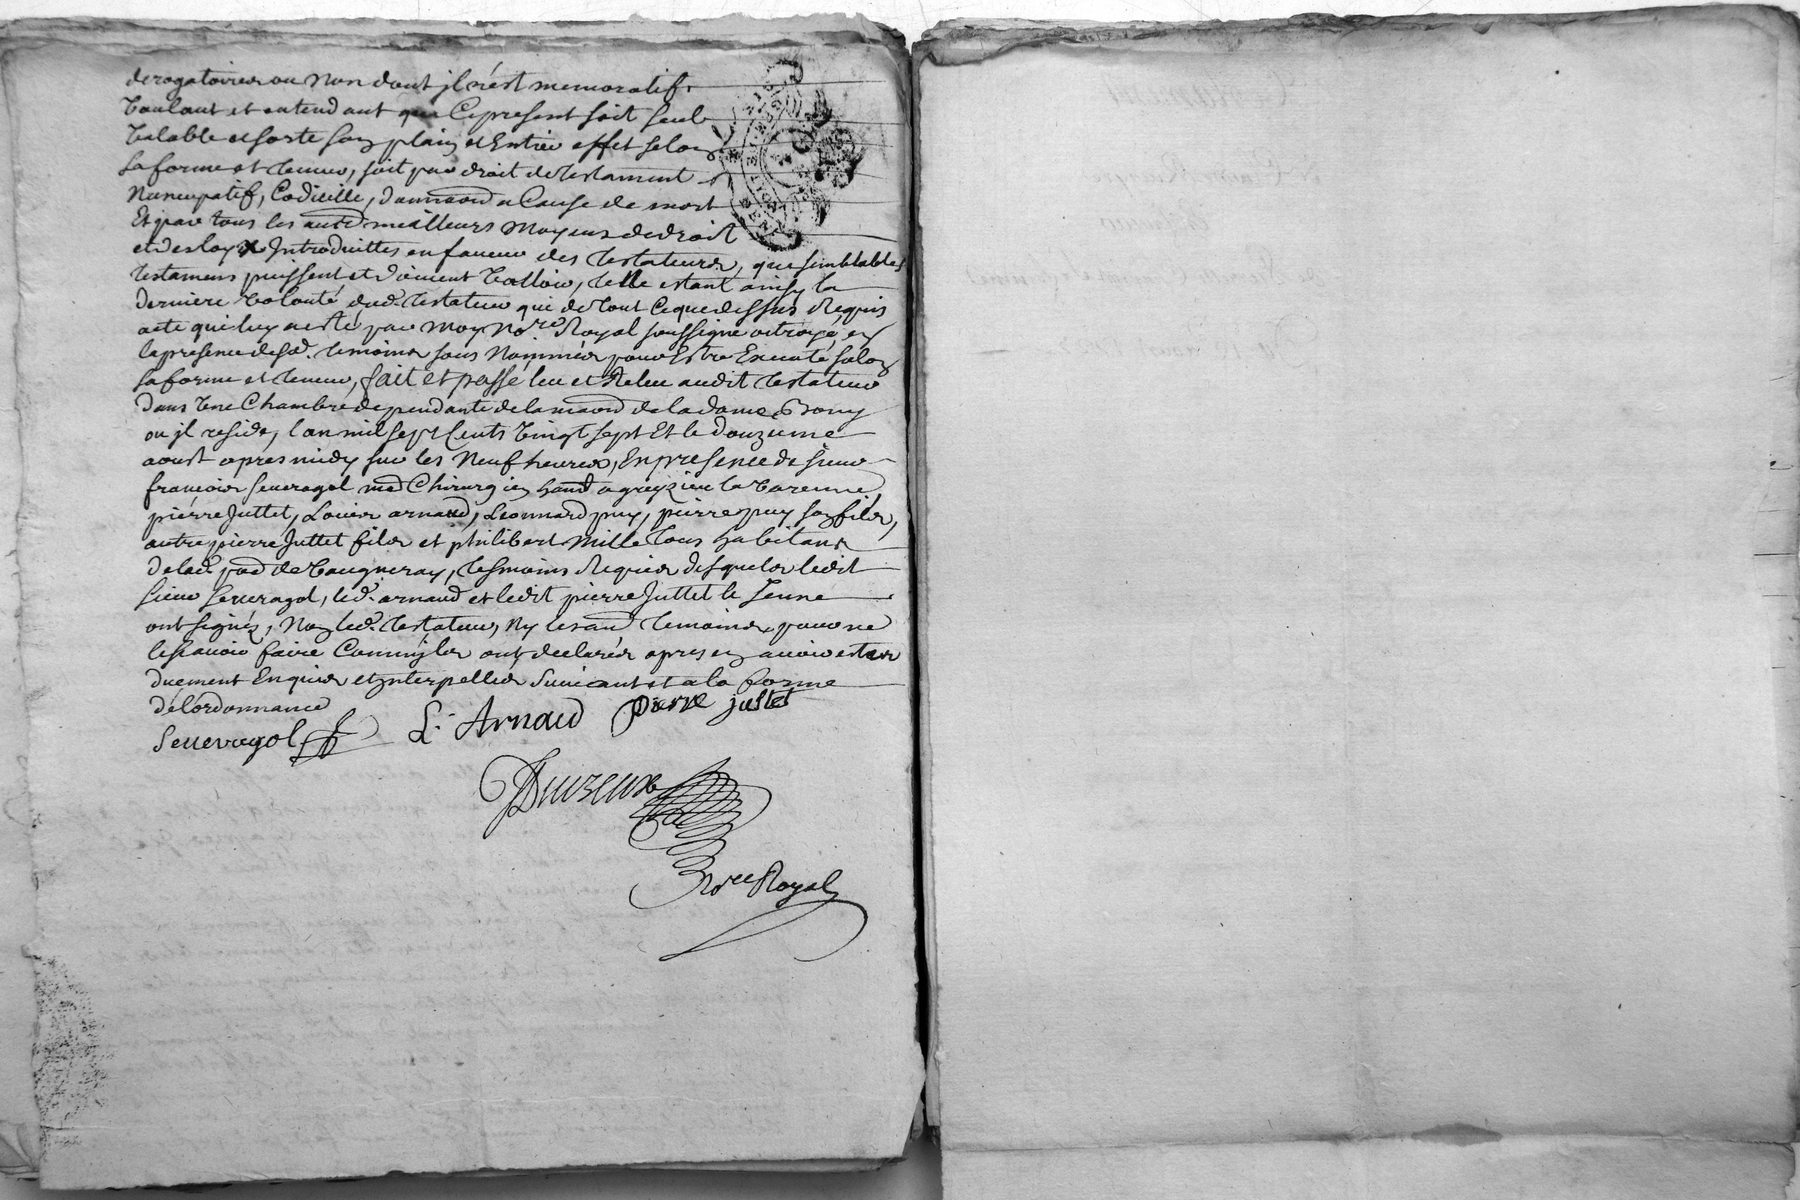 derogatoires ou Non dont jl n'est memoratif.
Voulant et entendant que Ce present soit seul
Valable et sorte son plain et Entier effet selon
sa forme et teneur, soit par droit de testament
Nuncupatif, Codicille, donnaon a Cause de mort
Et par tous les aut. meilleurs moyens de droit
et des loyx Introduittes en faveur des testateurs, que semblables
testamens puissent et doivent Valloir, telle estant ainsy la
derniere Volonté dud. testateur qui de tout Ce que dessus Requis
acte qui luy a esté par moy No.re Royal soussigné octroyé, en
la presence desd. temoins sous Nommés pour Estre Executé selon
sa forme et teneur, fait et passé leu et Releu audit testateur
dans Une Chambre dependante de la maon de la dame Brony
ou jl reside, l'an mil sept Cents Vingt sept Et le douzieme
aoust apres midy sur les Neuf heures, En presence de sieur
francois seneragol md Chirurgien hant a greyzieu la Varenne,
pierre Juttet, Louis arnaud, Leonnard puy, pierre puy son fils,
autre pierre Juttet fils et philibert Mille tous habitans
de lad. pad de Vaugneray, tesmoins Requis desquels ledit
sieur seneragol, led. arnaud et ledit pierre Juttet le Jeune
ont signés, Non led. testateur, Ny les aut. temoins pour ne
le sçavoir faire Comm'jls ont declarés apres en avoir estes
duement Enquis et jnterpellés suivant et a la forme
de l'ordonnance
Seneragol L. Arnaud pierre juttet
No.re Royal